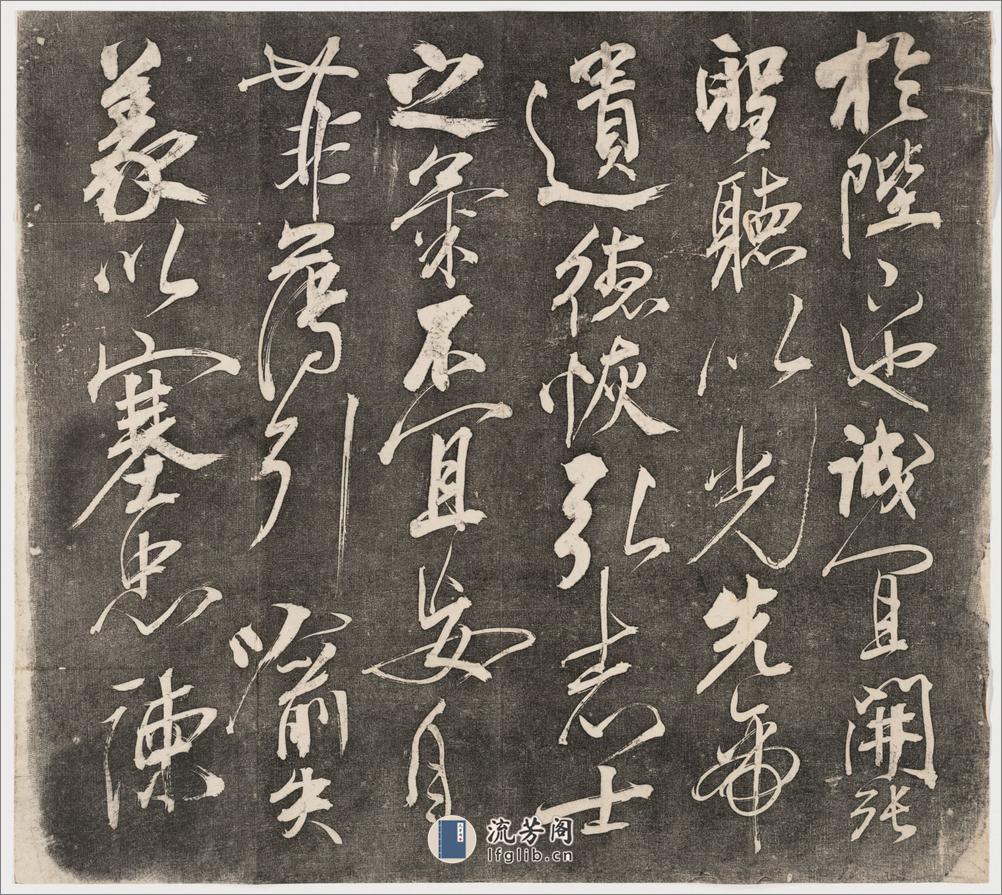 於陛下也誠宜開張
聖聽以光先帝
遺德恢弘志士
之氣不宜妄自
菲薄引喻失
義以塞忠諫
流芳阁
lfglib.cn